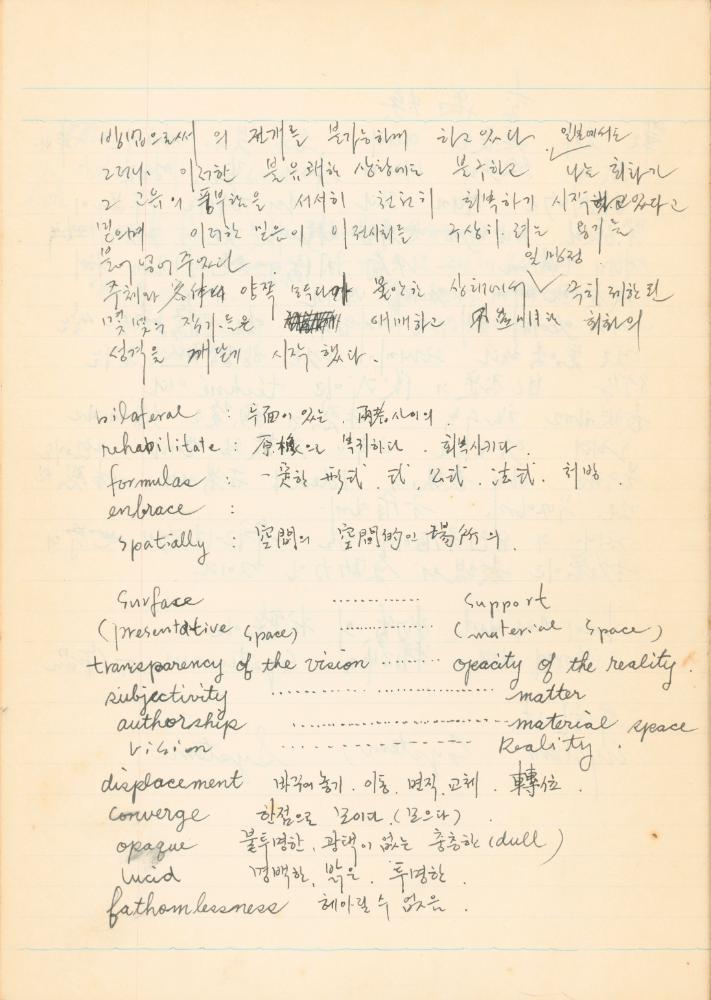 방법으로써의 전개를 불가능하게 하고 있다. 일본에서는
그러나, 이러한 불유쾌한 상황에도 불구하고 나는 회화가
그 고유의 풍부함을 서서히 천천히 회복하기 시작하고 있다고
믿으며 이러한 믿음이 이 전시회를 구상하려는 용기를
불어 넣어 주었다.
주체와 客体 양쪽 모두 불안한 상태에서 일방정 극히 제한된
몇몇의 작가들은 애매하고 회화의
성격을 깨닫기 시작했다.
bilateral : 두面이 있는. 両者사이의.
rehabilitate : 原橡으로 복귀하다. 회복시키다.
formulas : 一定한 形式. 式. 公式. 法式. 처방.
enbrace :
spatially : 空間의 空間的인 場所의.
Surface ............ Support
(presentative space) ............ (material space)
transparency of the vision ........ opacity of the reality.
subjectivity ........................ matter
authorship ........................ material space
Vision .................... Reality.
displacement 바꾸어 놓기. 이동. 면직. 교체. 轉位.
Converge 한점으로 모이다. (모으다).
opaque 불투명한, 광택이 없는 충충한 (dull)
lucid 명백한, 밝은. 투명한.
fathomlessness 헤아릴 수 없음.